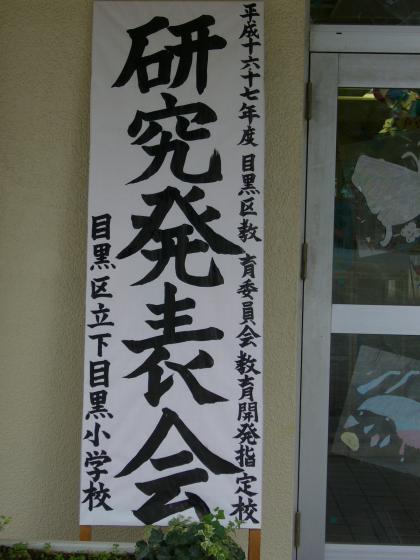 平成十六十七年度 目黒区教育委員会教育開発指定校
研究発表会
目黒区立下目黒小学校